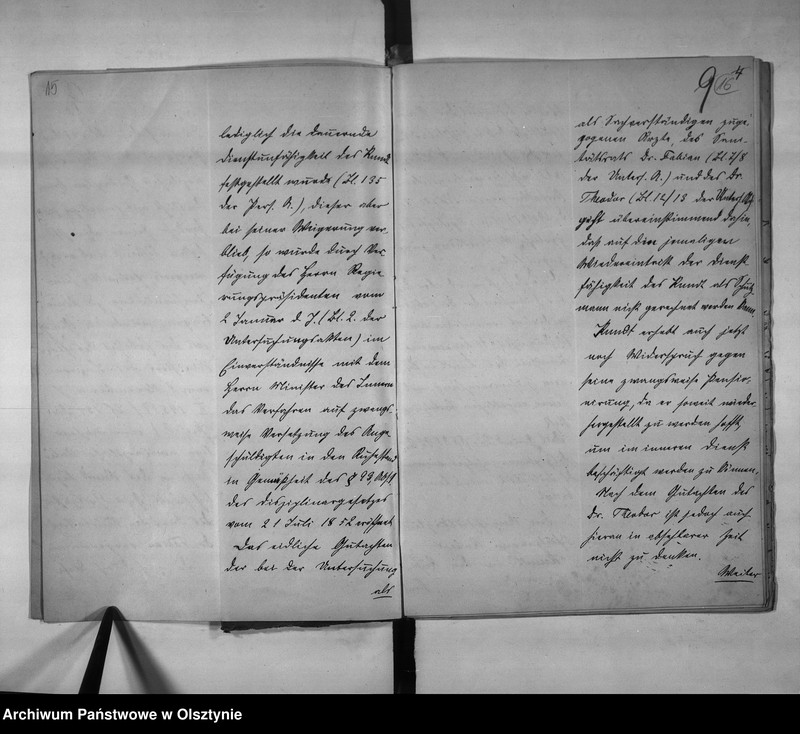 15
lediglich die dauernde
Dienstunfähigkeit des Kundt
festgestellt wurde (Bl. 195
der Pers. A.), dieser aber
bei seiner Weigerung ver-
blieb, so wurde durch Ver-
fügung des Herrn Regie
rungspräsidenten vom
2 Januar d. J. (Bl. 2. der
Untersuchungsakten) im
Einverständnisse mit dem
Herrn Minister des Innern
das Verfahren auf zwangs-
weise Versetzung des Ange
schuldigten in den Ruhestand
in Gemäßheit des § 99, Abs 1
des Disziplinargesetzes
vom 21 Juli 1852 eröffnet
Das eidliche Gutachten
der bei der Untersuchung
als
9 16 4
als Sachverständigen zuge
zogenen Ärzte, des Sani-
tätsrats Dr. Fabian (Bl. 7/8
der Unters. A.) und des Dr.
Theodor (Bl. 14/15 der Unters. A.)
geht übereinstimmend dahin,
daß auf den jemaligen
Wiedereintritt der Dienst
fähigkeit des Kundt als Schutz
mann nicht gerechnet werden kann.
Kundt erhebt auch jetzt
noch Widerspruch gegen
seine zwangsweise Pensio-
nierung, da er soweit wieder
hergestellt zu werden hofft,
um im inneren Dienst
beschäftigt werden zu können.
Nach dem Gutachten des
Dr. Theodor ist jedoch auch
hieran in absehbarer Zeit
nicht zu denken.
Weiter
Archiwum Państwowe w Olsztynie